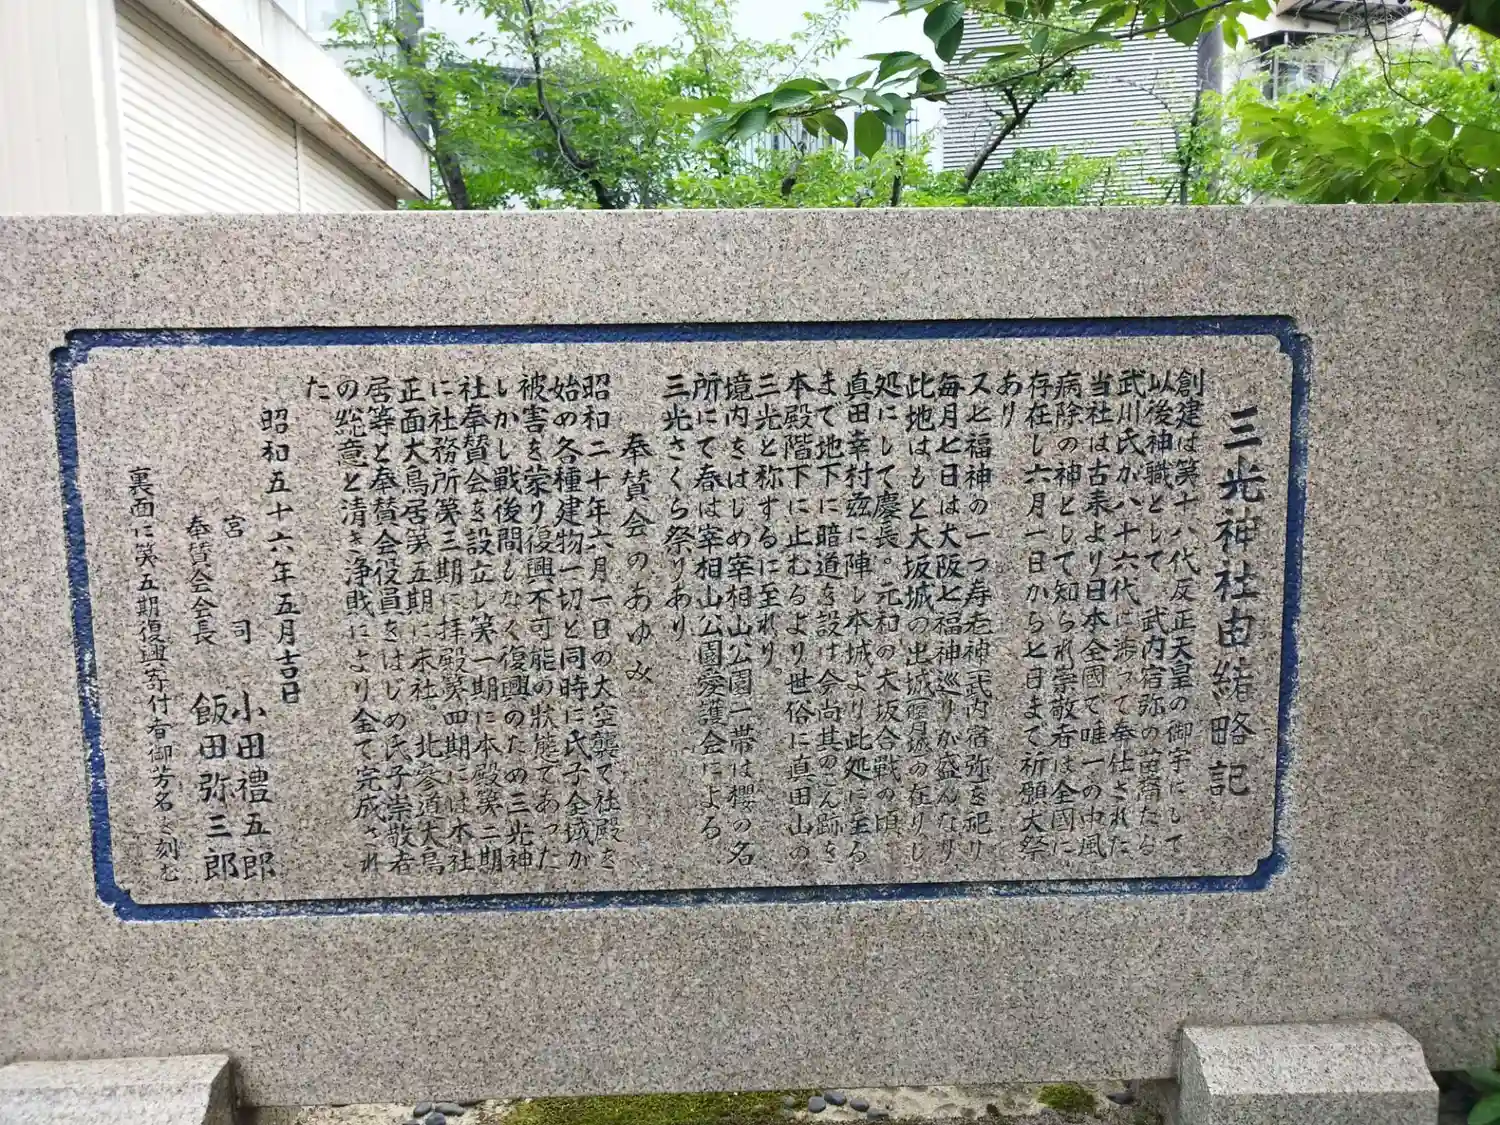 三光神社由緒略記
創建は第十八代反正天皇の御宇にして
以後神職として 武内宿弥の苗裔たる
武川氏が八十六代に渉って奉仕された
当社は古来より日本全國で唯一の中風
病除の神として知られ崇敬者は全國に
存在し六月一日から七日まで祈願大祭
あり
又七福神の一つ寿老神武内宿弥を祀り
毎月七日は大阪七福神巡りが盛んなり
此地はもと大坂城の出城 の在りし
処にして慶長。元和の大坂合戦の頃、
真田幸村茲に陣し本城より此処に至る
まで地下に暗道を設け今尚其のこん跡を
本殿階下に止むるより世俗に真田山の
三光と称するに至れり。
境内をはじめ宰相山公園一帯は櫻の名
所にて春は宰相山公園愛護会による
三光さくら祭りあり
奉賛会のあゆみ
昭和二十年六月一日の大空襲で社殿を
始め各種建物一切と同時に氏子全域が
被害を蒙り復興不可能の状態であった
しかし戦後間もなく復興のため三光神
社奉賛会を設立し第一期に本殿第二期
に社務所第三期に拝殿第四期には本社
正面大鳥居第五期に末社、北参道大鳥
居等と奉賛会役員をはじめ氏子崇敬者
の総意と清き浄財により全て完成され
た
昭和五十六年五月吉日
宮司 小田禮五郎
奉賛会会長 飯田弥三郎
裏面に第五期復興寄付者御芳名を刻む